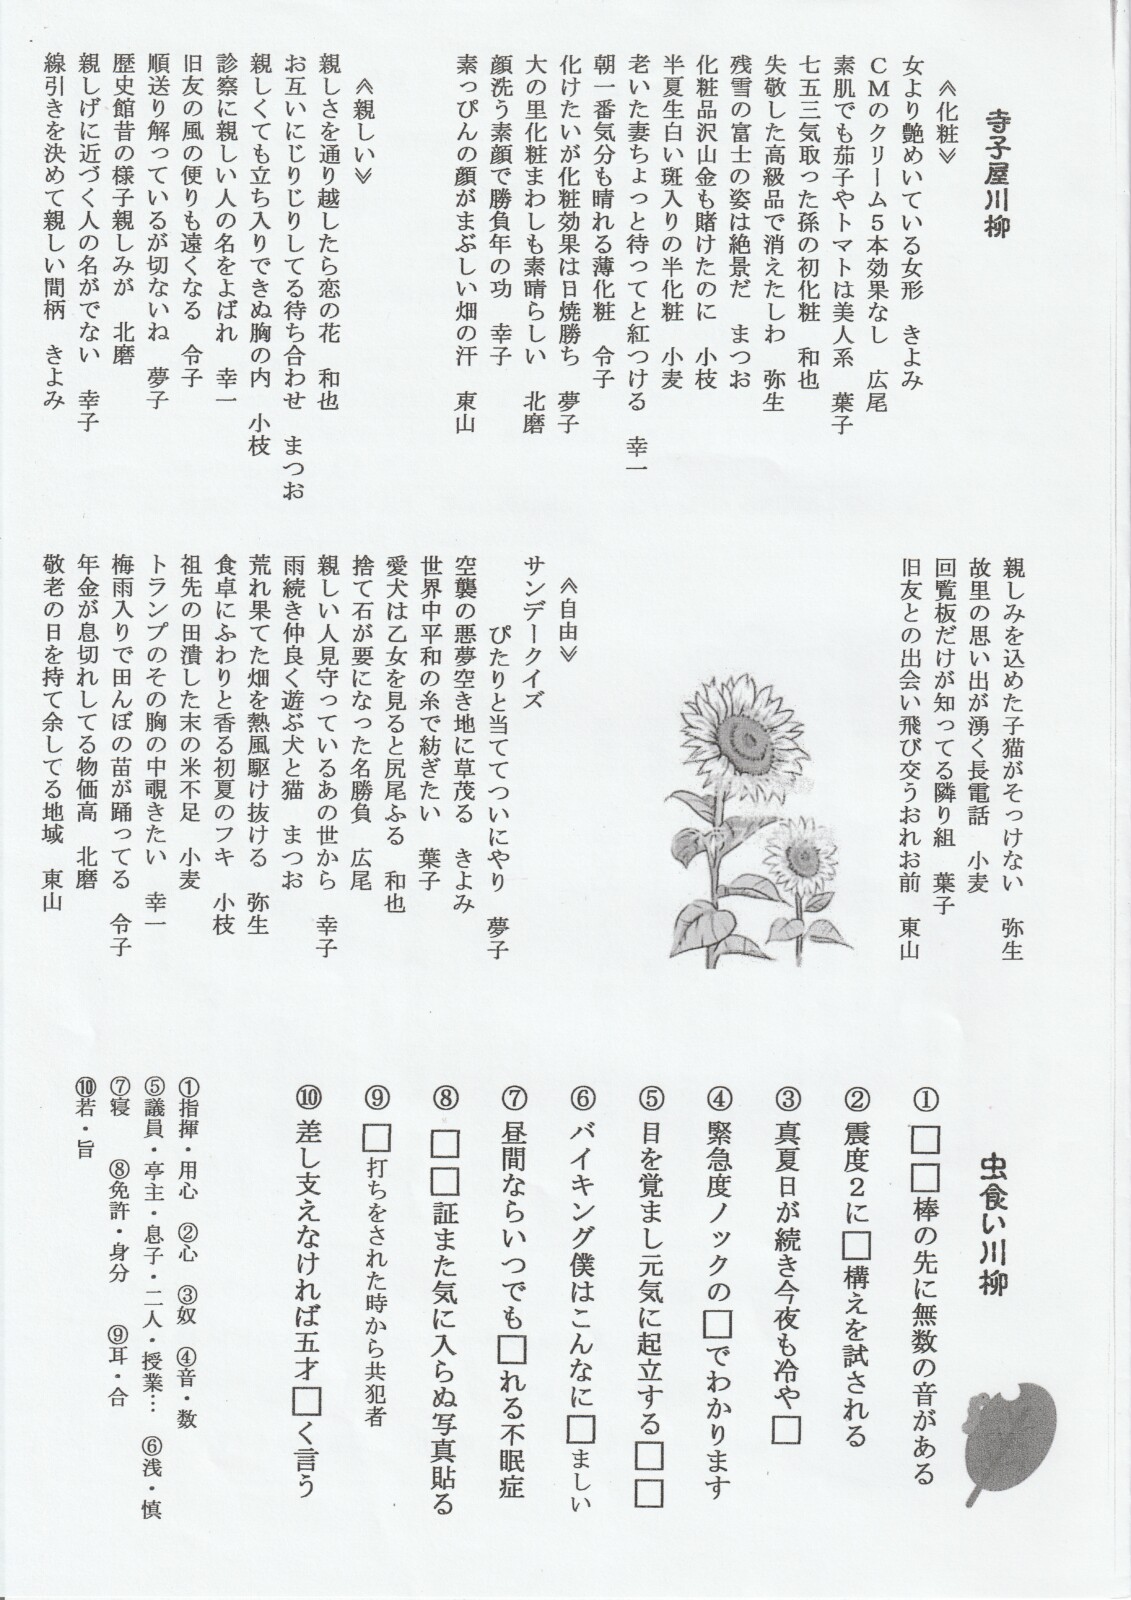 寺子屋川柳
≪化粧≫
女より艶めいている女形　きよみ
ＣＭのクリーム５本効果なし　広尾
素肌でも茄子やトマトは美人系　葉子
七五三気取った孫の初化粧　和也
失敬した高級品で消えたしわ　弥生
残雪の富士の姿は絶景だ　まつお
化粧品沢山金も賭けたのに　小枝
半夏生白い斑入りの半化粧　小麦
老いた妻ちょっと待ってと紅つける　幸一
朝一番気分も晴れる薄化粧　令子
化けたいが化粧効果は日焼勝ち　夢子
大の里化粧まわしも素晴らしい　北磨
顔洗う素顔で勝負年の功　幸子
素っぴんの顔がまぶしい畑の汗　東山
≪親しい≫
親しさを通り越したら恋の花　和也
お互いにじりじりしてる待ち合わせ　まつお
親しくても立ち入りできぬ胸の内　小枝
診察に親しい人の名をよばれ　幸一
旧友の風の便りも遠くなる　令子
順送り解っているが切ないね　夢子
歴史館昔の様子親しみが　北磨
親しげに近づく人の名がでない　幸子
線引きを決めて親しい間柄　きよみ
親しみを込めた子猫がそっけない　弥生
故里の思い出が湧く長電話　小麦
回覧板だけが知ってる隣り組　葉子
旧友との出会い飛び交うおれお前　東山
≪自由≫
サンデークイズ
ぴたりと当ててついにやり　夢子
空襲の悪夢空き地に草茂る　きよみ
世界中平和の糸で紡ぎたい　葉子
愛犬は乙女を見ると尻尾ふる　和也
捨て石が要になった名勝負　広尾
親しい人見守っているあの世から　幸子
雨続き仲良く遊ぶ犬と猫　まつお
荒れ果てた畑を熱風駆け抜ける　弥生
食卓にふわりと香る初夏のフキ　小枝
祖先の田潰した末の米不足　小麦
トランプのその胸の中覗きたい　幸一
梅雨入りで田んぼの苗が踊ってる　令子
年金が息切れしてる物価高　北磨
敬老の日を持て余してる地域　東山
虫食い川柳
①□□棒の先に無数の音がある
②震度２に□構えを試される
③真夏日が続き今夜も冷や□
④緊急度ノックの□でわかります
⑤目を覚まし元気に起立する□□
⑥バイキング僕はこんなに□ましい
⑦昼間ならいつでも□れる不眠症
⑧□□証また気に入らぬ写真貼る
⑨□打ちをされた時から共犯者
⑩差し支えなければ五才□く言う
①指揮・用心　②心　③奴　④音・数
⑤議員・亭主・息子・二人・授業…　⑥浅・慎
⑦寝　⑧免許・身分　⑨耳・合
⑩若・旨